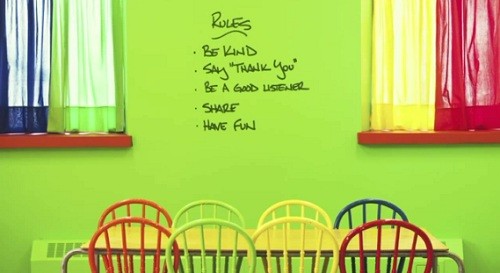 RULES
· BE KIND
· SAY "THANK YOU"
· BE A GOOD LISTENER
· SHARE
· HAVE FUN